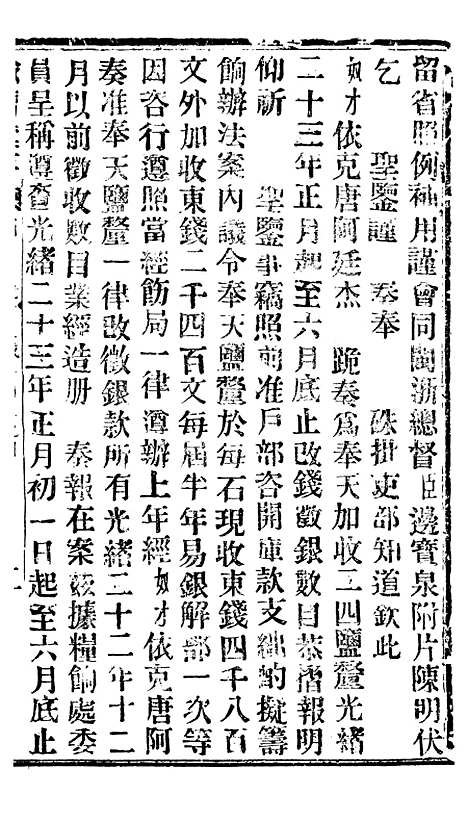 留省照例補用謹會同閩浙總督臣邊寶泉附片陳明伏
乞 聖鑒謹 奏奉 硃批吏部知道欽此
奴才依克唐阿廷杰 跪奏爲奉天加收二四鹽釐光緒
二十三年正月起至六月底止改錢徵銀數目恭摺報明
仰祈 聖鑒事竊照前准戶部咨開庫款支絀酌擬籌
餉辦法案內議令奉天鹽釐於每石現收東錢四千八百
文外加收東錢二千四百文每屆半年易銀解部一次等
因咨行遵照當經飭局一律遵辦上年經奴才依克唐阿
奏准奉天鹽釐一律改徵銀款所有光緒二十二年十二
月以前徵收數目業經造册 奏報在案茲據糧餉處委
員呈稱遵查光緒二十三年正月初一日起至六月底止